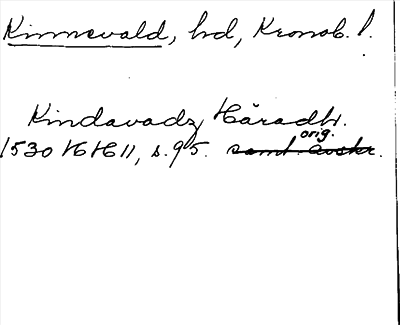 Kinnevald, hd, Kronob. l.
Kindavadz Häradh.
orig.
1530 HH 11, s. 95. samt. avskr.